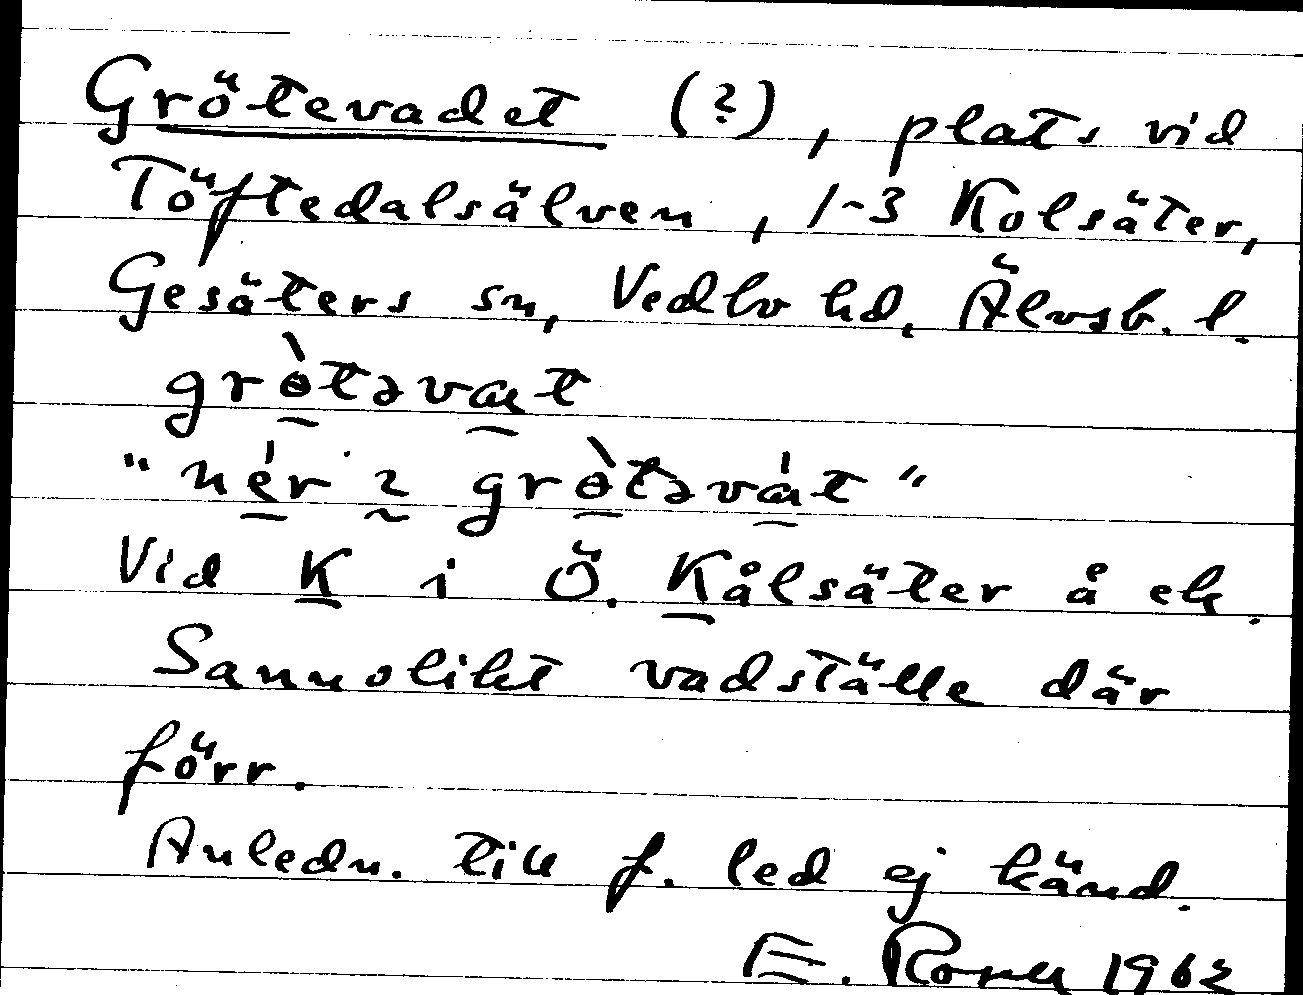 Grötevadet (?), plats vid
Töftedalsälven, 1-3 Kolsäter,
Gesäters sn, Vedbo hd, Älvsb. l.
grɵ̀təvat
"nér ɩ grɵ̀təvát"
Vid K i Ö. Kålsäter å ek.
Sannolikt vadställe där
förr.
Anledn. till f. led ej känd.
E. 1962